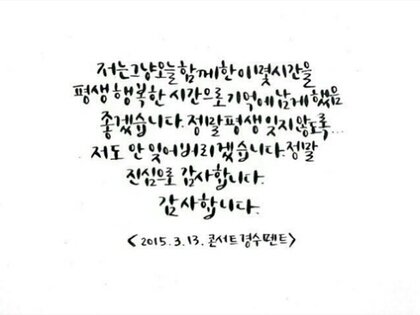 저는 그냥 오늘 함께한 이 몇시간을
평생 행복한 시간으로 기억에 남게 했음
좋겠습니다. 정말 평생 잊지 않도록...
저도 안 잊어버리겠습니다. 정말
진심으로 감사합니다.
감사합니다.
<2015.3.13. 콘서트 경수멘트>